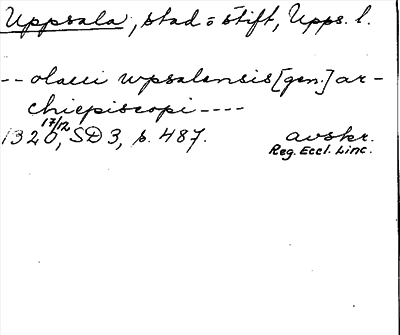 Uppsala, stad o stift, Upps. l.
-- olaui wpsalensis [gen.] ar-
chiepiscopi ----
1320 17/12, SD 3, s. 487. avskr.
Reg. Eccl. Linc.